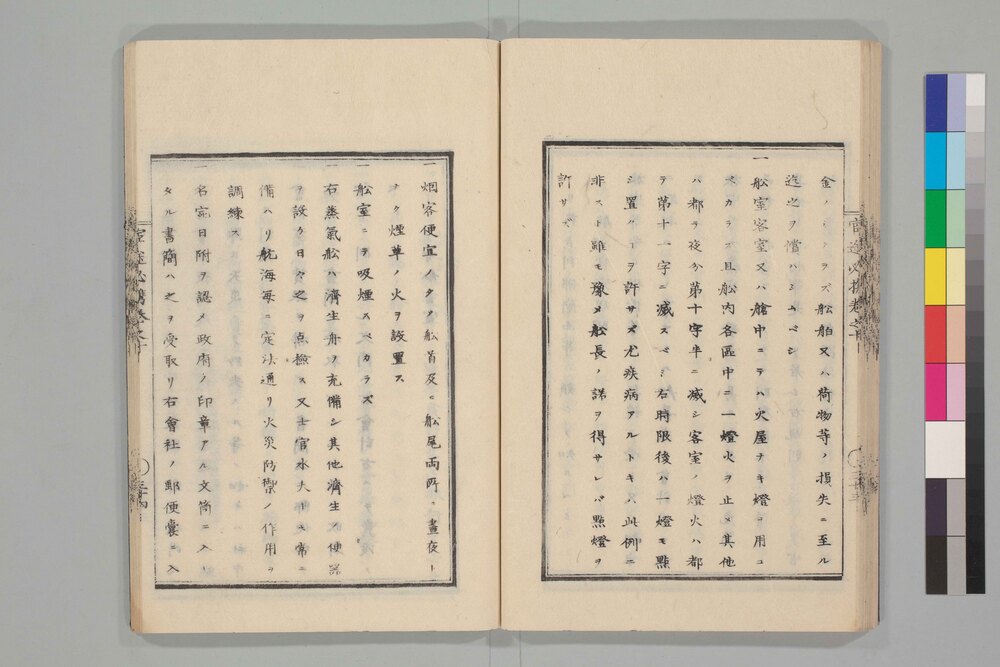 金ノミナラズ舩舶又ハ荷物等ノ損失ニ至ル
迄之ヲ償ハシムベシ
一舩室客室又ハ艙中ニテハ火屋ナキ燈ヲ用ユ
ベカラズ且舩内各區中ニ一燈火ヲ止メ其他
ハ都テ夜分第十字半ニ滅シ客室ノ燈火ハ都
テ第十一字ニ滅スベシ右時限後ハ一燈モ點
シ置クヿヲ許サズ尤疾病アルトキハ此例ニ
非ズト雖モ豫メ舩長ノ諾ヲ得サレバ點燈ヲ
許サズ
一烟客便宜ノタメ舩首及ヒ舩尾両所ニ晝夜ト
ナク煙草ノ火ヲ設置ス
一舩室ニテ吸煙スベカラズ
一右蒸氣舩ハ濟生舟ヲ充備シ其他濟生ノ便器
ヲ設ケ日々之ヲ点檢ス又士官水夫トモ常ニ
備ハリ航海毎ニ定法通リ火災防禦ノ作用ヲ
調練ス
一名宛日附ヲ認メ政府ノ印章アル文筒ニ入レ
タル書簡ハ之ヲ受取リ右會社ノ郵便嚢ニ入